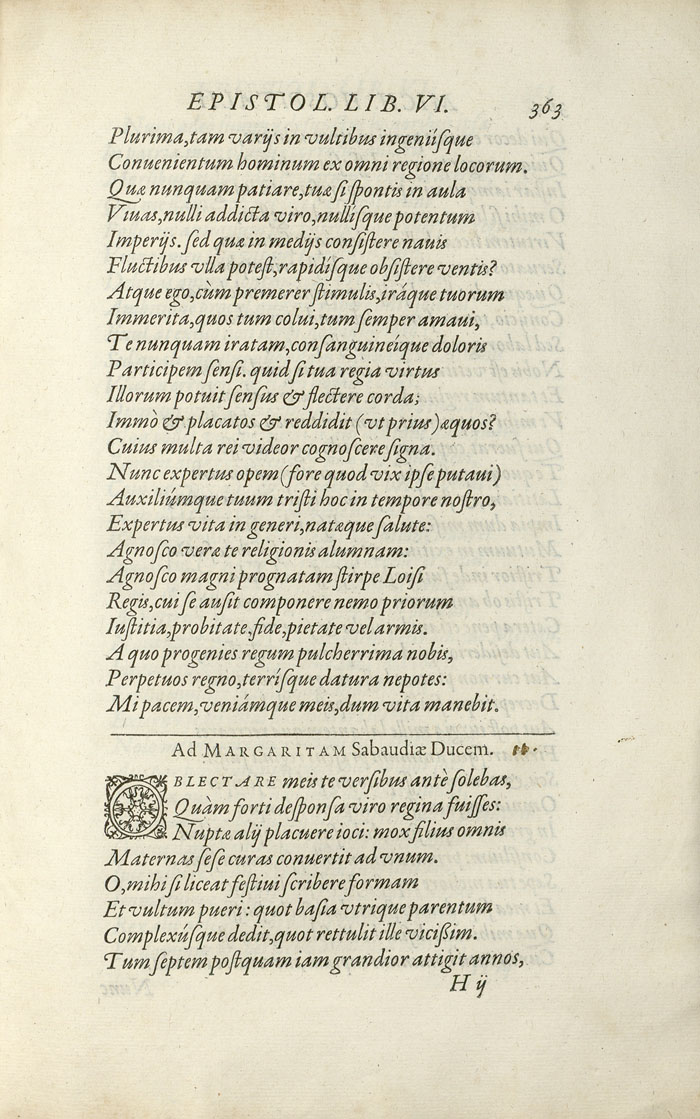 EPISTOL. LIB. VI. 363
Plurima,tam varijs in vultibus ingeniíſque
Conuenientum hominum ex omni regione locorum.
Quæ nunquam patiare,tuæ ſi ſpontis in aula
Viuas,nulli addicta viro,nullíſque potentum
Imperijs. ſed quæ in medijs conſiſtere nauis
Fluctibus vlla poteſt,rapidíſque obſiſtere ventis?
Atque ego,cùm premerer ſtimulis,iráque tuorum
Immerita,quos tum colui,tum ſemper amaui,
Te nunquam iratam,conſanguineíque doloris
Participem ſenſi. quid ſi tua regia virtus
Illorum potuit ſenſus & flectere corda;
Immò & placatos & reddidit (vt prius) æquos?
Cuius multa rei videor cognoſcere ſigna.
Nunc expertus opem (fore quod vix ipſe putaui)
Auxiliúmque tuum triſti hoc in tempore noſtro,
Expertus vita in generi,natæque ſalute:
Agnoſco veræ te religionis alumnam:
Agnoſco magni prognatam ſtirpe Loiſi
Regis,cui ſe auſit componere nemo priorum
Iuſtitia,probitate,fide,pietate vel armis.
A quo progenies regum pulcherrima nobis,
Perpetuos regno,terríſque datura nepotes:
Mi pacem,veniámque meis,dum vita manebit.
Ad MARGARITAM Sabaudiæ Ducem.
OBLECTARE meis te verſibus antè ſolebas,
Quàm forti deſponſa viro regina fuiſſes:
Nuptæ alij placuere ioci: mox filius omnis
Maternas ſeſe curas conuertit ad vnum.
O,mihi ſi liceat feſtiui ſcribere formam
Et vultum pueri: quot baſia vtrique parentum
Complexúſque dedit,quot rettulit ille vicißim.
Tum ſeptem poſtquam iam grandior attigit annos,
H ij